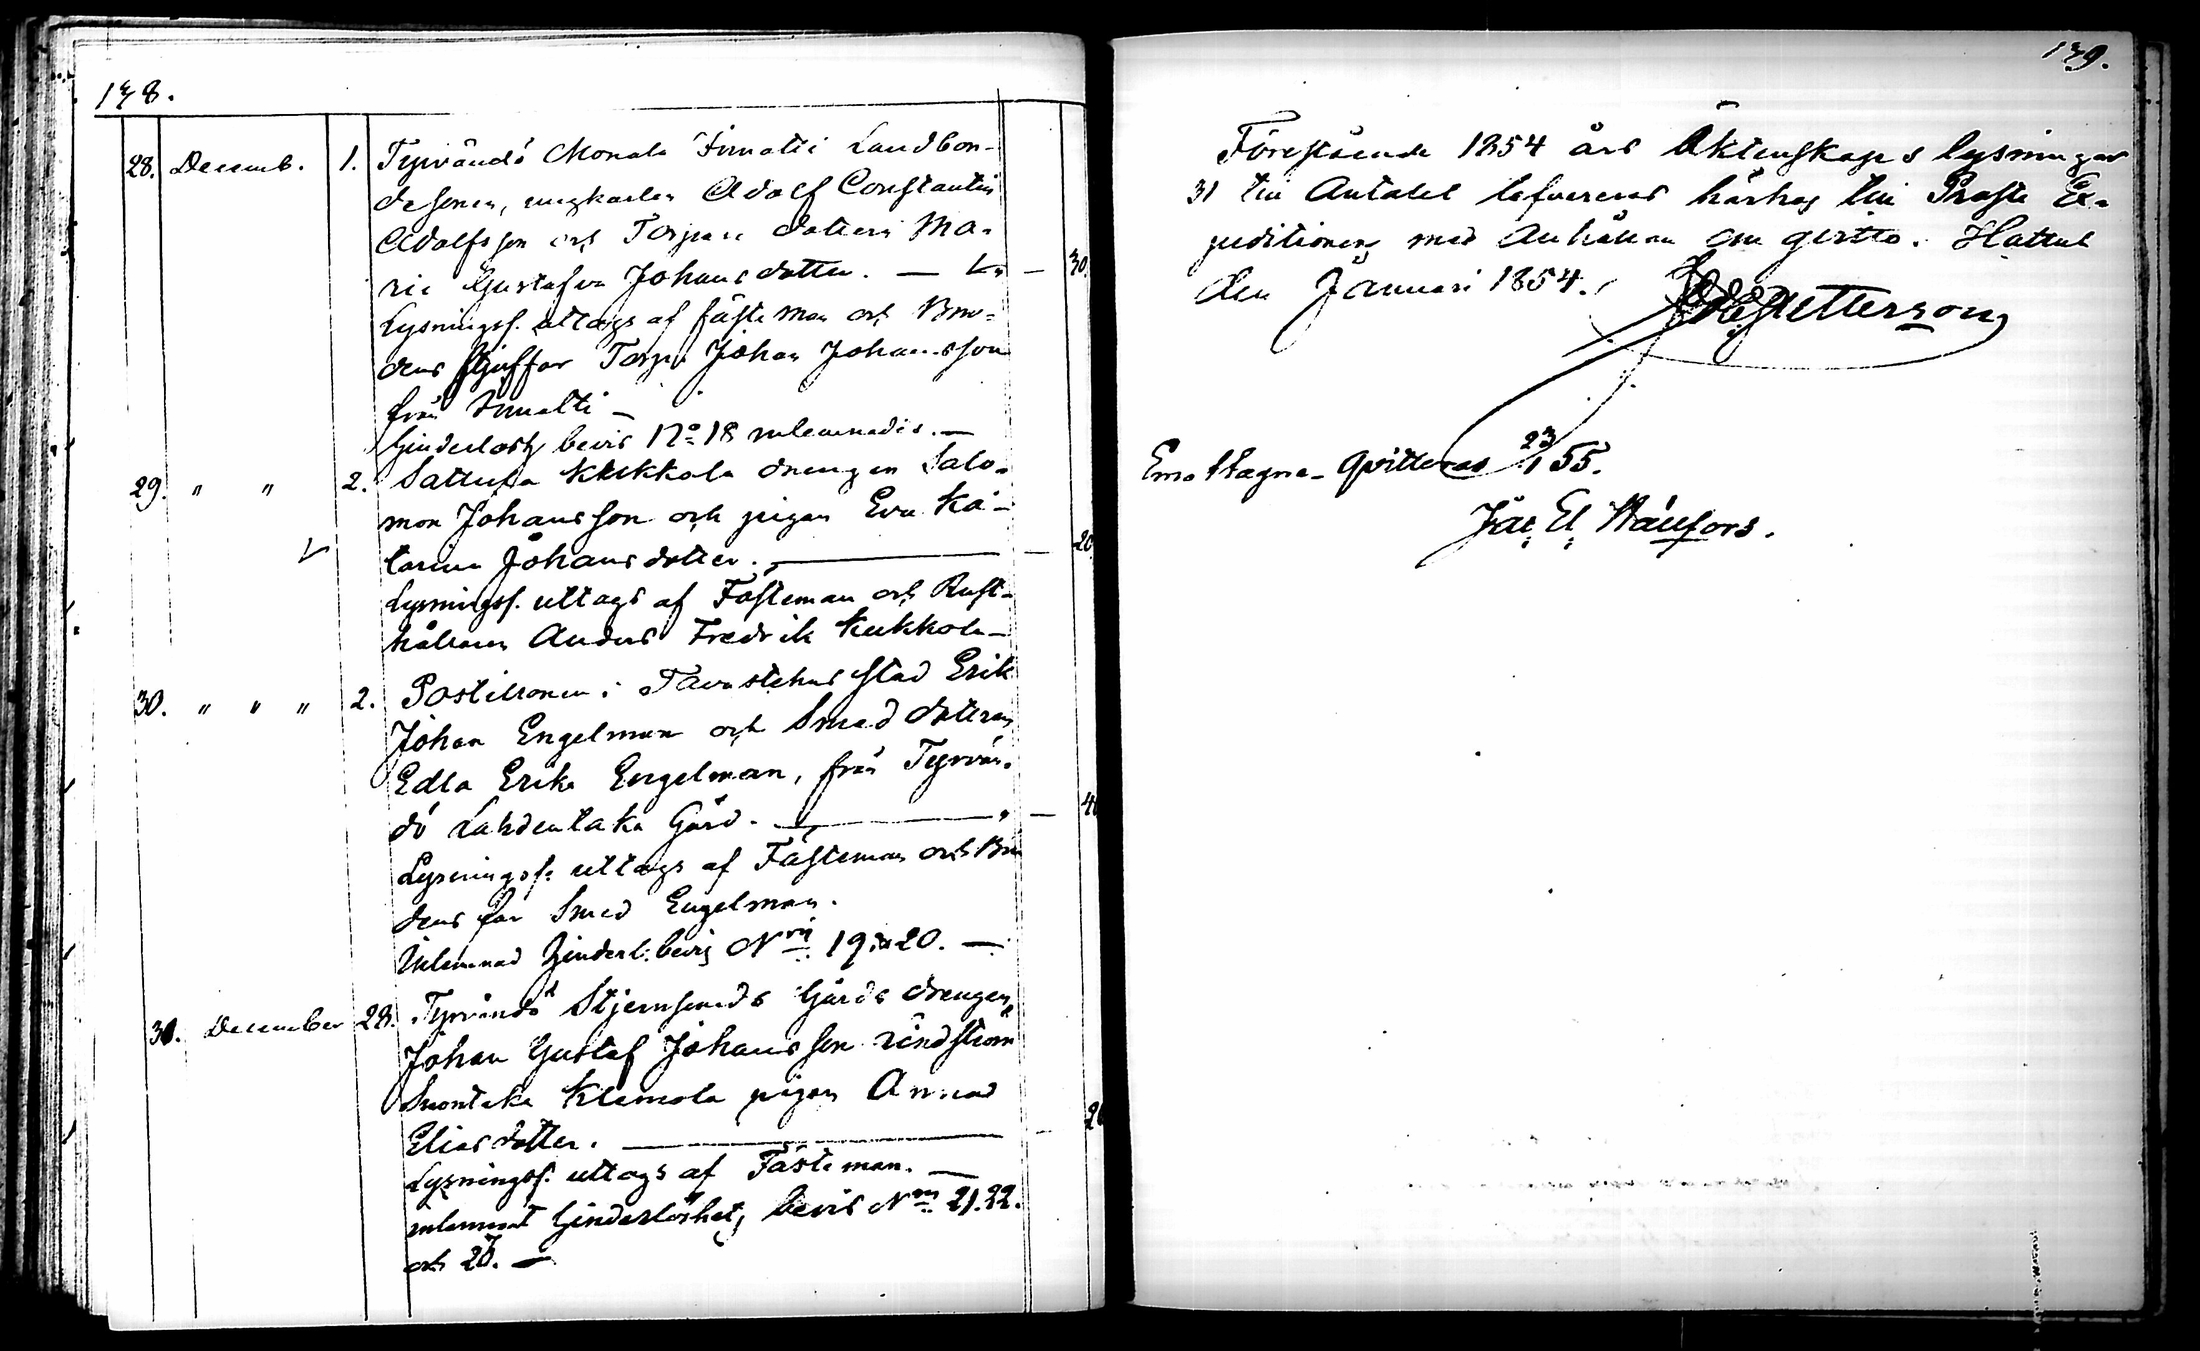 178.
28. Decemb. 1. Tyrvändö Monala Simalti Landbon-
desonen, ungkarlen Adolf Constantin
Adolfsson och Torpare dottern Ma-
ria Gustafva Johansdotter. — — 30.
Lysningss. uttags af fästeman och Bru-
dens Stjuffar Torp. Johan Johansson
från Simalti —
Hinderlösh. bevis No 18 inlemnades. —
29. " " 2. Sattula Kukkola drengen Salo-
mon Johansson och pigan Eva Ka-
tarina Johansdotter. — — 20.
Lysningss. uttags af Fästeman och Rust-
hållaren Anders Fredrik Kukkola —
30. " " " 2. Postillionen i Tavastehus stad Erik
Johan Engelman och Smed dottern
Edla Erika Engelman, från Tyrvän-
dö Lahdentaka Gård. — — 40
Lysningss. uttags af Fästeman och Bru
dens far Smed Engelman.
Inlemnad Hinderl. bevis Nris 19 20. —
31. December 28. Tyrvändö Stjernsunds Gårds drengen
Johan Gustaf Johansson Lindström
Suontaka Klemola pigan Anna
Eliasdotter. — — 20
Lysningss. uttags af Fästeman. —
inlemnat Hinderlöshets bevis 21. 22.
och 23. —
179.
Förestående 1854 års Äktenskaps lysningar
31 till Antalet lefvereras härhos till Prosts Ex-
peditionen med Anhållan om qvitto. Hattula
den Januari 1854.
Petterson
Emottagna Qvitteras 23/1 55.